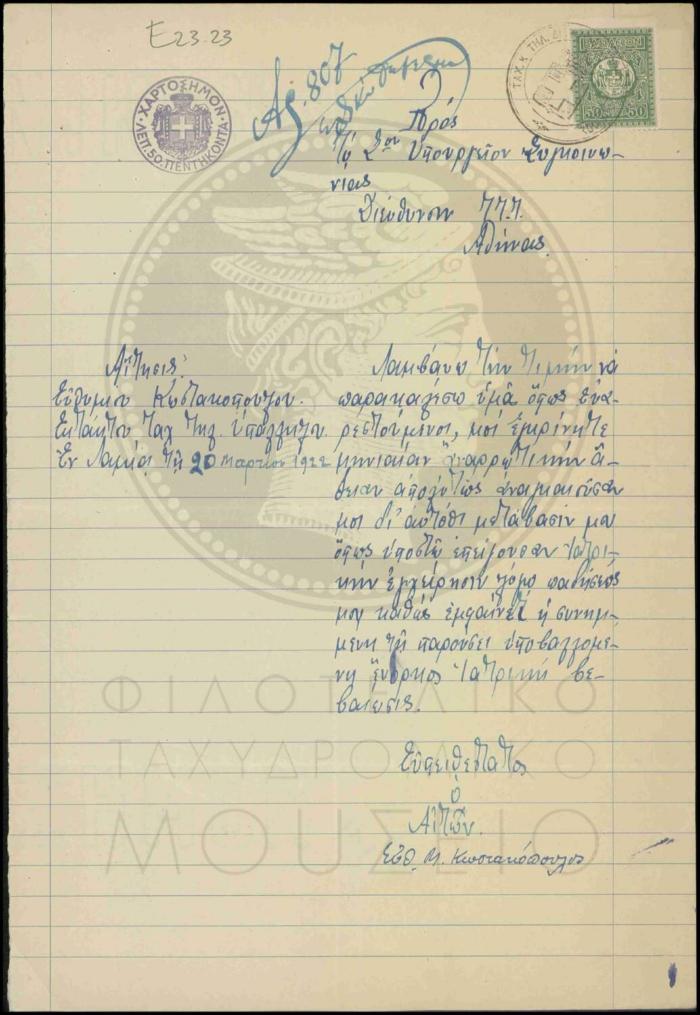 E23.23
ΧΑΡΤΟΣΗΜΟΝ
ΛΕΠ. 50. ΠΕΝΤΗΚΟΝΤΑ
ΤΑΧ. Κ. ΤΗΛ.
50 50
Αρ. 807
Πρός
Τό Σον Υπουργείον Συγκοινω-
νίας
Διεύθυνσιν Τ.Τ.Τ.
Αθήνας
Αἴτησις
Εὐθυμίου Κωστακοπούλου.
Εκτάκτου Ταχ Τηλ. Υπαλλήλου.
Ἐν Λαμίᾳ τῇ 20 Μαρτίου 1922
Λαμβάνω τὴν τιμὴν νὰ
παρακαλέσω ὑμᾶ ὅπως εὐα-
ρεστούμενοι, μοὶ ἐγκρίνητε
μηνιαίαν ἀναρρωτικὴν ἄ-
δειαν ἀπολύτως ἀναγκαιοῦσαν
μοι δι' αὐτόθι μετάβασίν μου
ὅπως ὑποστῶ ἐπείγουσαν ἰατρι-
κὴν ἐγχείρησιν λόγῳ παθήσεώς
μου καθὼς ἐμφαίνει ἡ συνημ-
μένη τῇ παρούσει ὑποβαλλομέ-
νη ἔνορκος ἰατρικὴ βε-
βαίωσις.
Εὐπειθέστατος
ὁ
Αἰτῶν.
Εὐθ. Μ. Κωστακόπουλος
ΦΙΛΟΤΕΛΙΚΟ
ΤΑΧΥΔΡΟΜΙΚΟ
ΜΟΥΣΕΙΟ